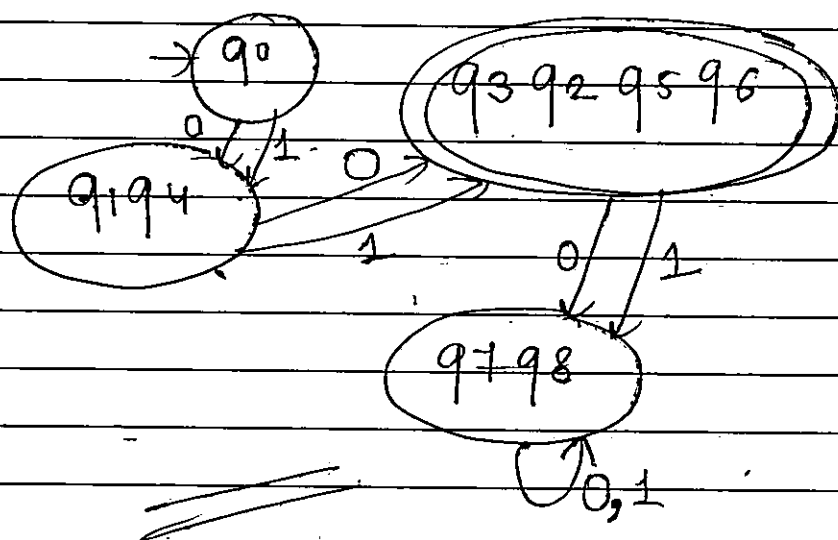 q0
q3 q2 q5 q6
0 1
0
q1 q4
1
0 1
q7 q8
0,1